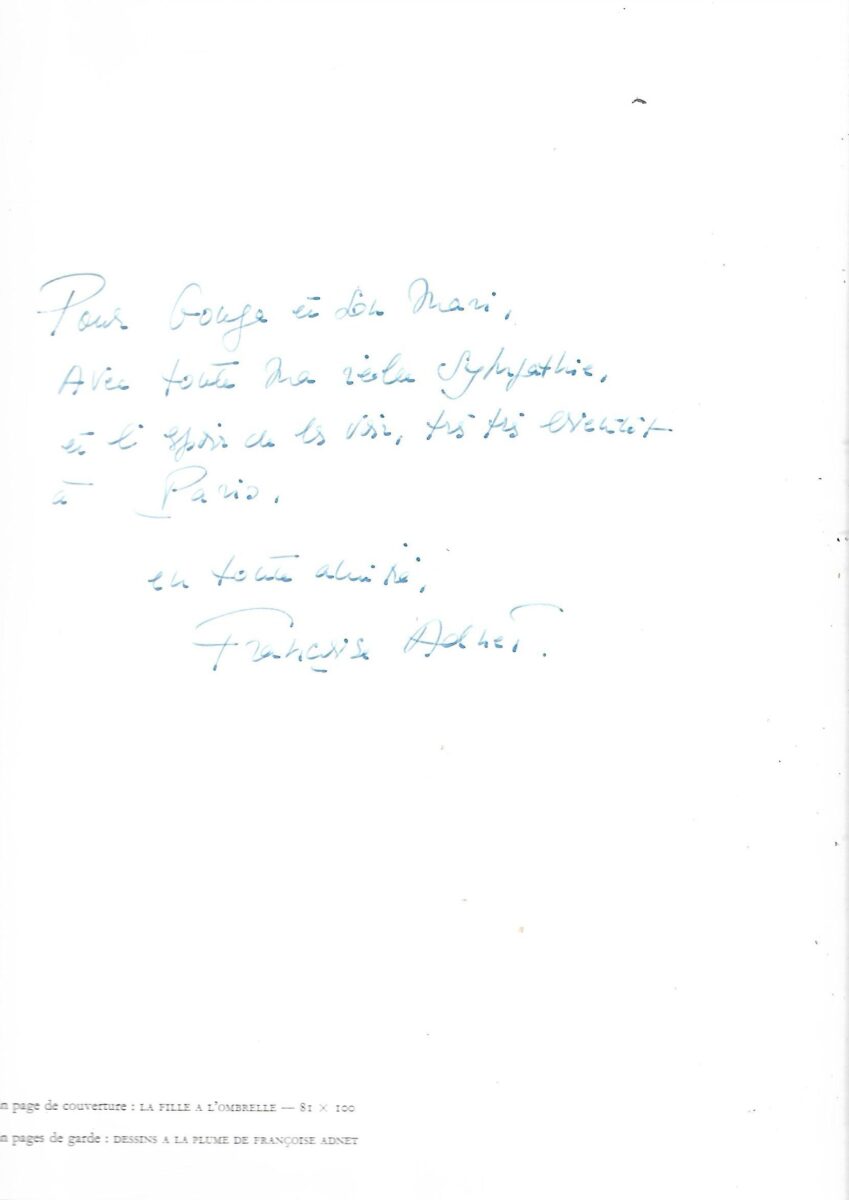 Pour Gouga et son Mari,
Avec toute ma réelle Sympathie,
et l'espoir de les voir, très très bientôt
à Paris.
en toute amitié,
Françoise Adnet.
n page de couverture : LA FILLE A L'OMBRELLE — 81 × 100
n pages de garde : DESSINS A LA PLUME DE FRANÇOISE ADNET